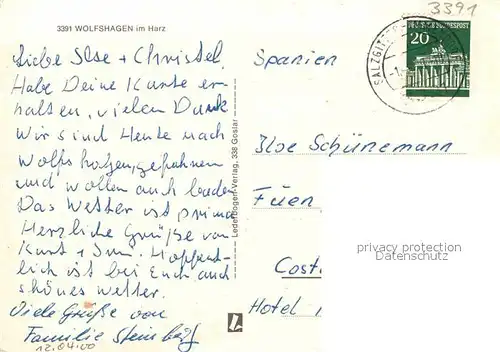 3391
3391 WOLFSHAGEN im Harz
Liebe Ilse + Christel.
Habe Deine Karte er-
halten, vielen Dank
Wir sind Heute nach
Wolfshagen, gefahren
und wollen auch baden
Das Wetter ist prima
Herzliche Grüße von
Kurt + Hoffent-
lich ist bei Euch auch
schönes Wetter.
Viele Grüße von
Familie
12.04.00
Lederbogen-Verlag, 338 Goslar
SALZGITTER
DEUTSCHE BUNDESPOST
20
Spanien
Ilse Schünemann
Fuen
Cost
Hotel
privacy protection
Datenschutz